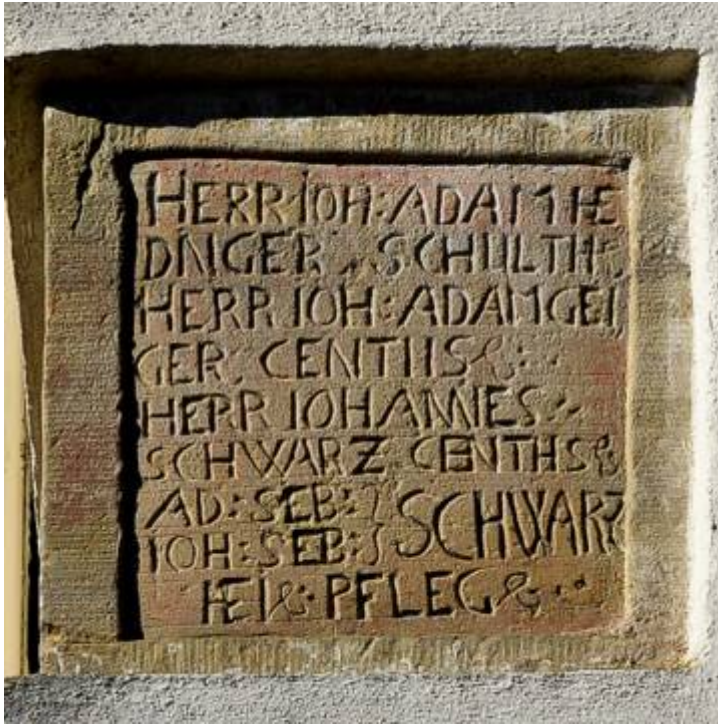 HERR IOH: ADAM HE
DNGER, SCHULTH,
HERR IOH: ADAM GEI,
GER, CENTHS&:
HERR IOHANNES:
SCHWARZ CENTHS&
AD: SEB: } SCHWARZ
IOH: SEB: }
HEI&: PFLEG&: